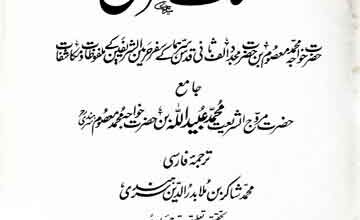 حضرت خواجہ محمد معصوم بن حضرت مجدد الف ثانی قدس سرہما کے سفر حرمین الشریفین کے ملفوظات و مکاشفات
جامع
حضرت مروج الشریعت محمد عبید اللہ بن حضرت خواجہ محمد معصوم سرہندی
ترجمۂ فارسی
محمد شاکر بن ملا بدر الدین سرہندی